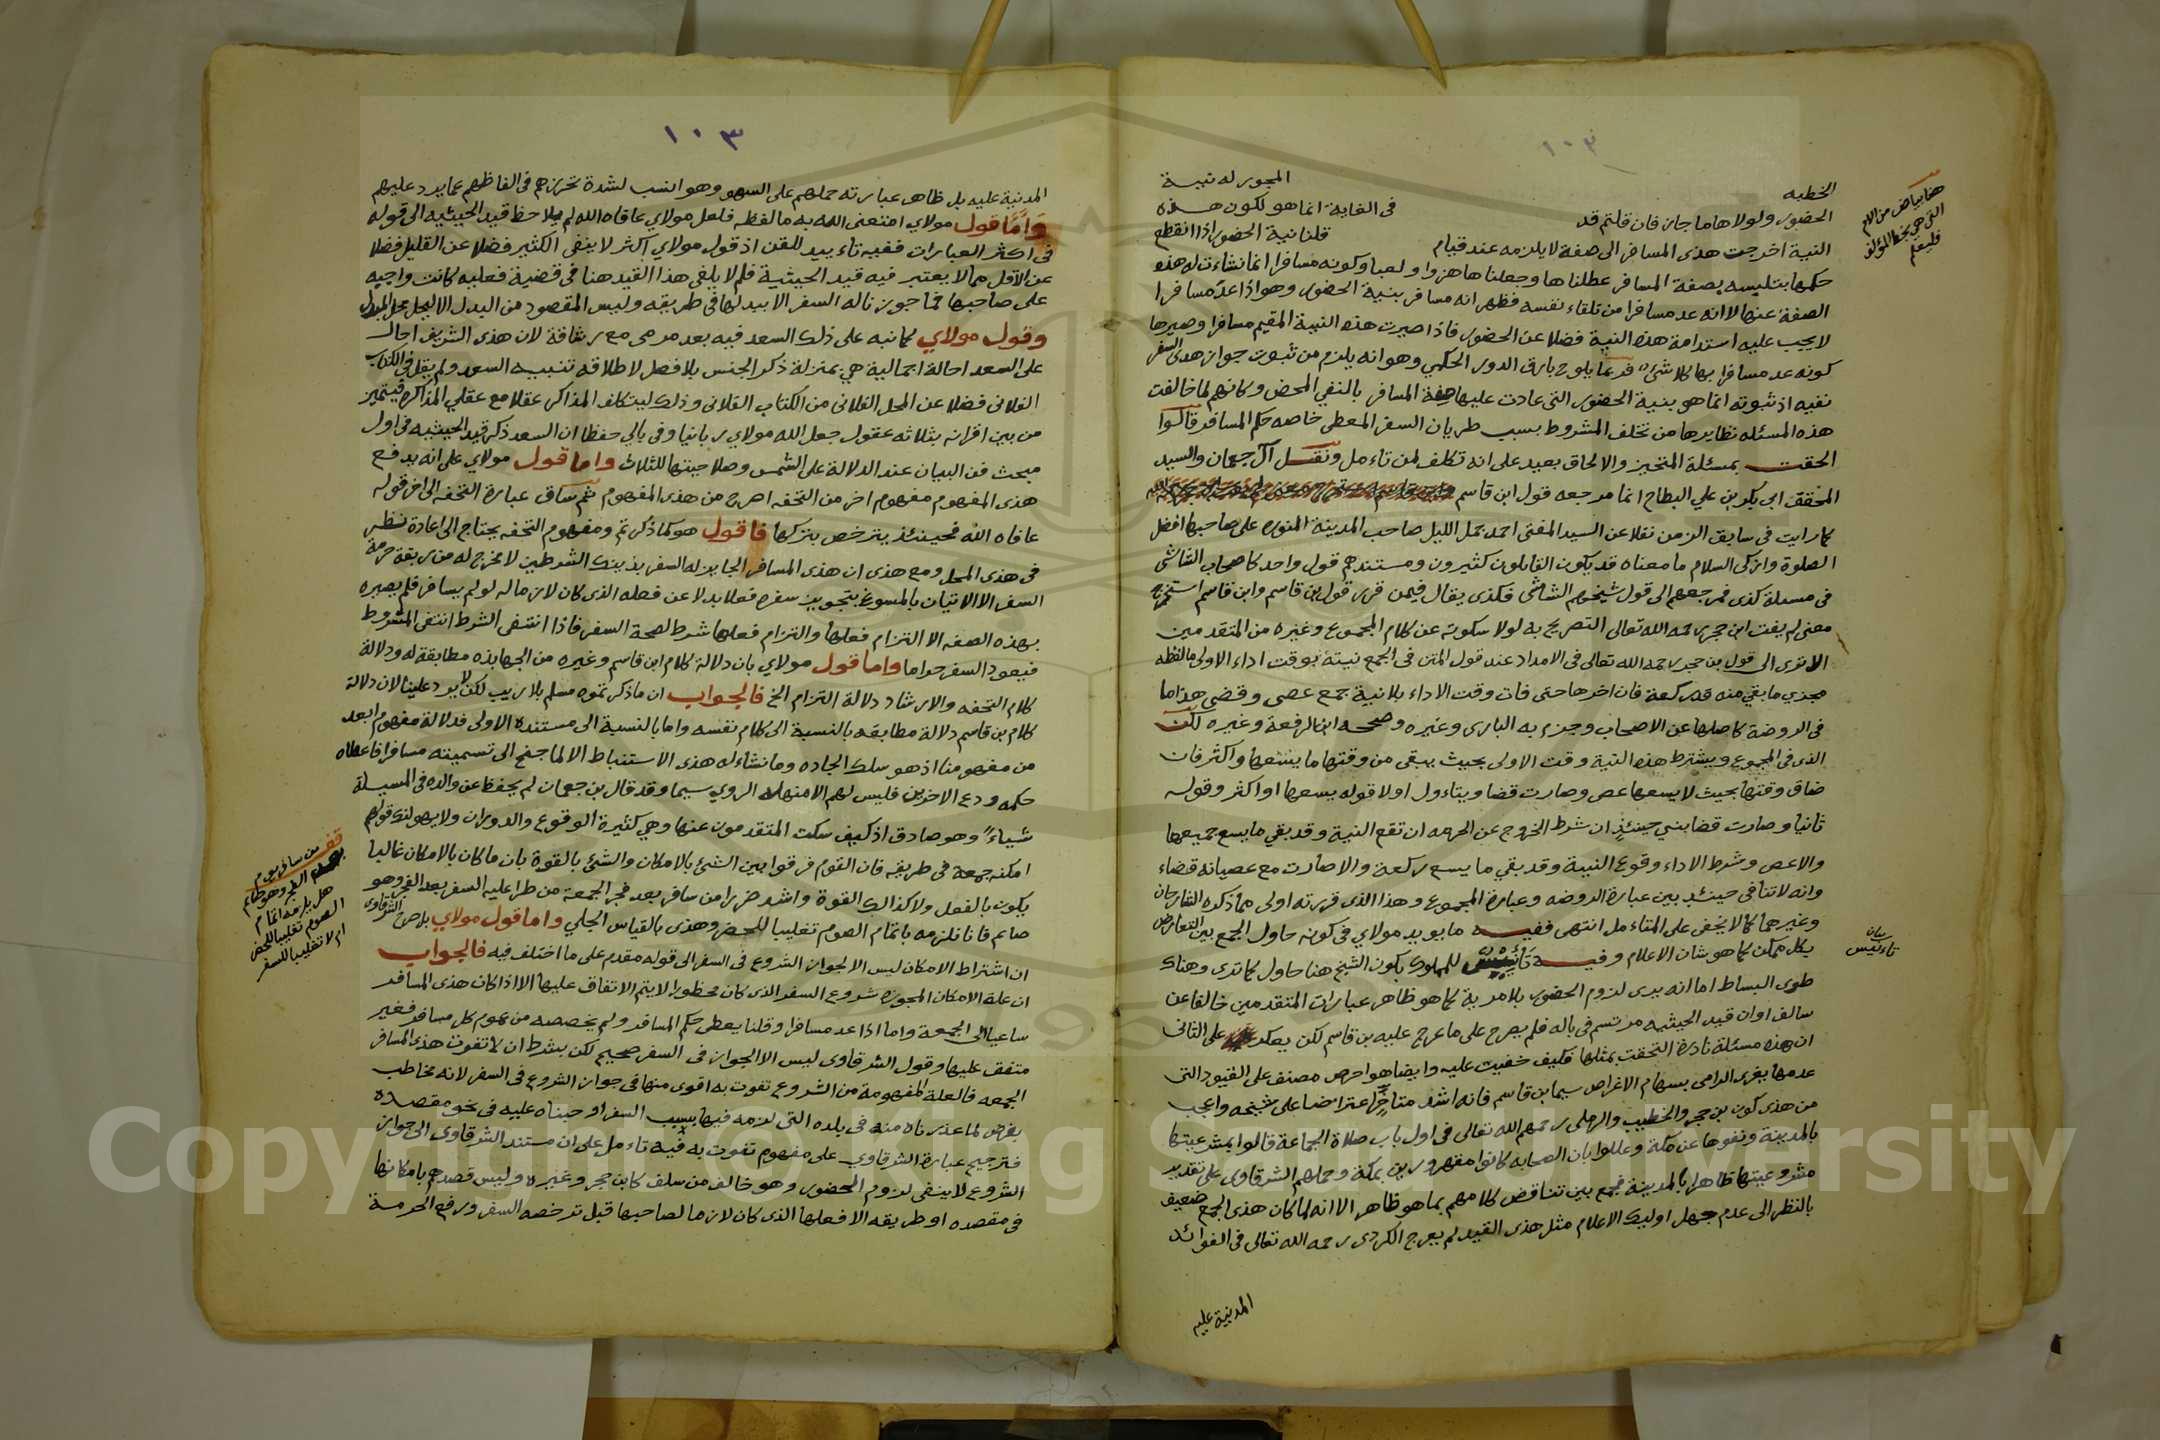 ١٠٣
الخطبه
المجوز له نيـة
الحضور ولولاها ما جاز فان قلتم قد
فى الغاية انما هو لكون هـذه
النية اخرجت هذى المسافر الى صفة لا يلزمه عند قيام
قلنا نية الحضور اذا انقطع
حكمها بتلبسه بصفة المسافر عطلناها وجعلناها هزوا ولعبا وكونه مسافرا انما نشاءت له هذه
الصفة عنها لا انه عد مسافرا من تلقاء نفسه فظهر انه مسافر بنية الحضور وهو اذا عد مسافرا
لا يجب عليه استدامة هذه النية فضلا عن الحضور فاذا صيرت هذه النية المقيم مسافرا وصيرها
كونه عد مسافرا بها كلا شئ فربما يلوح بارق الدور الحكمي وهو انه يلزم من ثبوت جواز هذى السفر
نفيه اذ ثبوته انما هو بنية الحضور التى عادت عليها صفة المسافر بالنفي المحض وكانهم لما خالفت
هذه المسئله نظايرها من تخلف المشروط بسبب طريان السفر المعطى خاصه حكم المسافر قالوا
الحقت بمسئلة المتحيز والالحاق بعيد على انه تكلف لمن تاءمل ونقـل آل جعمان والسيد
المحقق ابي بكر بن علي البطاح انما مرجعه قول ابن قاسم
كما رايت فى سابق الزمن نقلا عن السيد المفتى احمد جمل الليل صاحب المدينة المنوره على صاحبها افضل
الصلوة وازكى السلام ما معناه قد يكون القايلون كثيرون ومستندهم قول واحد كاصحاب القاشى
فى مسئلة كذى فمرجعهم الى قول شيخهم الشاشى فكذى يقال فيمن قرر قول بن قاسم وابن قاسم استخرج
معنى لم يفت ابن حجر رحمه الله تعالى التصريح به لولا سكوته عن كلام المجموع وغيره من المتقدمين
الا ترى الى قول بن حجر رحمه الله تعالى فى الامداد عند قول المتن فى الجمع نيته بوقت اداء الاولى ما لفظه
مجزي ما بقي منه قدر ركعة فان اخرها حتى فات وقت الاداء بلا نية جمع عصى وقضى هذا ما
فى الروضة كاصلها عن الاصحاب وجزم به البارزى وغيره وصححه ابن الرفعة وغيره لكن
الذى فى المجموع ويشترط هذه النية وقت الاولى بحيث يبقى من وقتها ما يسعها واكثر فان
ضاق وقتها بحيث لا يسعها عصى وصارت قضا ويتاءول اولا قوله يسعها او اكثر وقوله
ثانيا وصارت قضا بني حينئذ ان شرط الخروج عن الحرمه ان تقع النية وقد بقي ما يسع جميعها
والا عصى وشرط الاداء وقوع النيـة وقد بقي ما يسع ركعة والا صارت مع عصيانه قضاء
وانه لا تنافي حينئذ بين عبارة الروضه وعبارة المجموع وهذا الذى قررته اولى مما ذكره الشارحان
وغيرهما كما لا يخفى على المتاءمل انتهى ففيـه ما يويد مولاي فى كونه حاول الجمع بين التعارض
بكل ممكن كما هو شان الاعلام وفيـه تاءنيس للمملوك بكون الشيخ هنا حاول كما ترى وهناك
طوى البساط اما انه يرى لزوم الحضور بلا مرية كما هو ظاهر عبارات المتقدمين خالفا عن
سالف اوان قيد الحيثيه مرتسم فى باله فلم يصرح على ما عرج عليه بن قاسم لكن يعكر على الثانى
ان هذه مسئلة نادرة التحقت بمثلها فكيف خفيت عليه وايضا هو احرص مصنف على القيود التى
عدمها يغرى الرامى بسهام الاغراض سيما بن قاسم فانه اشد متاخر اعتراضا على شيخه واعجب
من هذى كون بن حجر والخطيب والرملى رحمهم الله تعالى فى اول باب صلاة الجماعة قالوا بمشرعيتها
بالمدينة ونفوها عن مكة وعللوا بان الصحابه كانوا مقهورين بمكة وحملهم الشرقاوى على تقدير
مشروعيتها ظاهرا بالمدينة فجمع بين تناقض كلامهم بما هو ظاهر الا انه لما كان هذى الجمع ضعيف
بالنظر الى عدم جهل اوليك الاعلام مثل هذى القيد لم يعرج الكردى رحمه الله تعالى فى الفوائد
المدنية عليه
هنا بياض من الام
التى هي بخط المؤلف
فليعلم
بيان
تاءنيس
١٠٣
المدنية عليه بل ظاهر عبارته حملهم على السهو وهو انسب لشدة تحرزهم فى الفاظهم عما يرد عليهم
وامَّا قول مولاي امتعنى الله به ما لفظه فلعل مولاي عافاه الله لم يلاحظ قيد الحيثيه الى قوله
فى اكثر العبارات ففيه تاءييد للفن اذ قول مولاي اكثر لا ينفى الكثير فضلا عن القليل فضلا
عن الاقل مما لا يعتبر فيه قيد الحيثية فلم لا يلغى هذا القيد هنا فى قضية فعليه كانت واجبه
على صاحبها فما جوزنا له السفر الا ببدلها فى طريقه وليس المقصود من البدل الا ليحل محل المبدل
وقول مولاي كما نبه على ذلك السعد فيه بعد مرمى مع رشاقة لان هذى الشريف احالـ
على السعد احالة اجمالية هي بمنزلة ذكر الجنس بلا فصل لاطلاقه تنبيه السعد ولم يقل فى الكتاب
الفلانى فضلا عن المحل الفلانى من الكتاب الفلانى وذلك ليتكلف المذاكر عقلا مع عقلي المذاكره فيتميز
من بين اقرانه بثلاثه عقول جعل الله مولاي ربانيا وفى بالي حفظا ان السعد ذكر قيد الحيثيه فى اول
مبحث فن البيان عند الدلالة على الشمس وصلاحيتها للثلاث واما قول مولاي على انه يدفع
هذى المفهوم مفهوم اخر من التحفه اصرح من هذى المفهوم ثم ساق عبارة التحفه الى اخر قوله
عافاه الله فحينئذ يترخص بتركها فاقول هو كما ذكرتم ومفهوم التحفه يحتاج الى اعادة نظر
فى هذى المحل ومع هذى ان هذى المسافر الجايز له السفر بذينك الشرطين لا مخرج له من ربقة حرمة
السفر الا الاتيان بالمسوغ بتجويز سفره فعلا بدلا عن فعله الذى كان لازما له لو لم يسافر فلم يصيره
بهذه الصفه الا التزام فعلها والتزام فعلها شرط لصحة السفر فاذا انتفى الشرط انتفى المشروط
فيعود السفر حراما واما قول مولاي بان دلالة كلام ابن قاسم وغيره من الجهابذه مطابقة له ودلالة
كلام التحفه والارشاد دلالة التزام الخ فالجواب ان ما ذكرتموه مسلم بلا ريب لكن لا يرد علينا لان دلالة
كلام بن قاسم دلالة مطابقه بالنسبة الى كلام نفسه واما بالنسبة الى مستنده الاولى فدلالة مفهوم ابعد
من مفهومنا اذ هو سلك الجاده وما نشاء له هذى الاستنباط الا لما جنح الى تسميته مسافرا فاعطاه
حكمه ودع الاخرين فليس لهم الا منهله الروي سيما وقد قال بن جعمان لم يحفظ عن والده فى المسيلة
شياءً وهو صادق اذ كيف سكت المتقدمون عنها وهي كثيرة الوقوع والدوران ولا يهولنك قولهم
امكنه جمعة فى طريقه فان القوم فرقوا بين الشئ بالامكان والشئ بالقوة بان ما كان بالامكان غالبا
يكون بالفعل ولا كذالك القوة واشد ضررا من سافر بعد فجر الجمعة من طرا عليه السفر بعد الفجر وهو
صائم فانا نلزمه باتمام الصوم تغليبا للحضر وهذى بالقياس الجلي واما قول مولاي بل صرح الشرقاوى
ان اشتراط الامكان ليس الا لجواز الشروع فى السفر الى قوله مقدم على ما اختلف فيه فالجواب
ان علة الامكان المجوزه شروع السفر الذى كان محظورا لا يتم الاتفاق عليها الا اذا كان هذى المسافر
ساعيا الى الجمعة واما اذا عد مسافرا وقلنا يعطى حكم المسافر ولم يخصصه من عموم كل مسافر فغير
متفق عليها وقول الشرقاوى ليس الا لجواز فى السفر صحيح لكن بشرط ان لا تفوت هذى المسافر
الجمعه فالعلة المفهومة من الشروع تفوت به اقوى منها فى جواز الشروع فى السفر لانه مخاطب
بفرض لما عذرناه منه فى بلده التى لزمه فيها بسبب السفر اوجبناه عليه فى نحو مقصده
فترجيح عبارة الشرقاوي على مفهوم تفوت به فيه تاءمل على ان مستند الشرقاوى الى جواز
الشروع لا ينفى لزوم الحضور وهو خالف من سلف كابن حجر وغيره وليس قصدهم بامكانها
فى مقصده او طريقه الا فعلها الذى كان لازما لصاحبها قبل ترخصه السفر ورفع الحرمة
قف من سافر يوم
بعد الفجر وهو صائم
هل يلزمه اتمام
الصوم تغليبا للحضر
ام لا تغليبا للسفر
Copyright © King Saud University